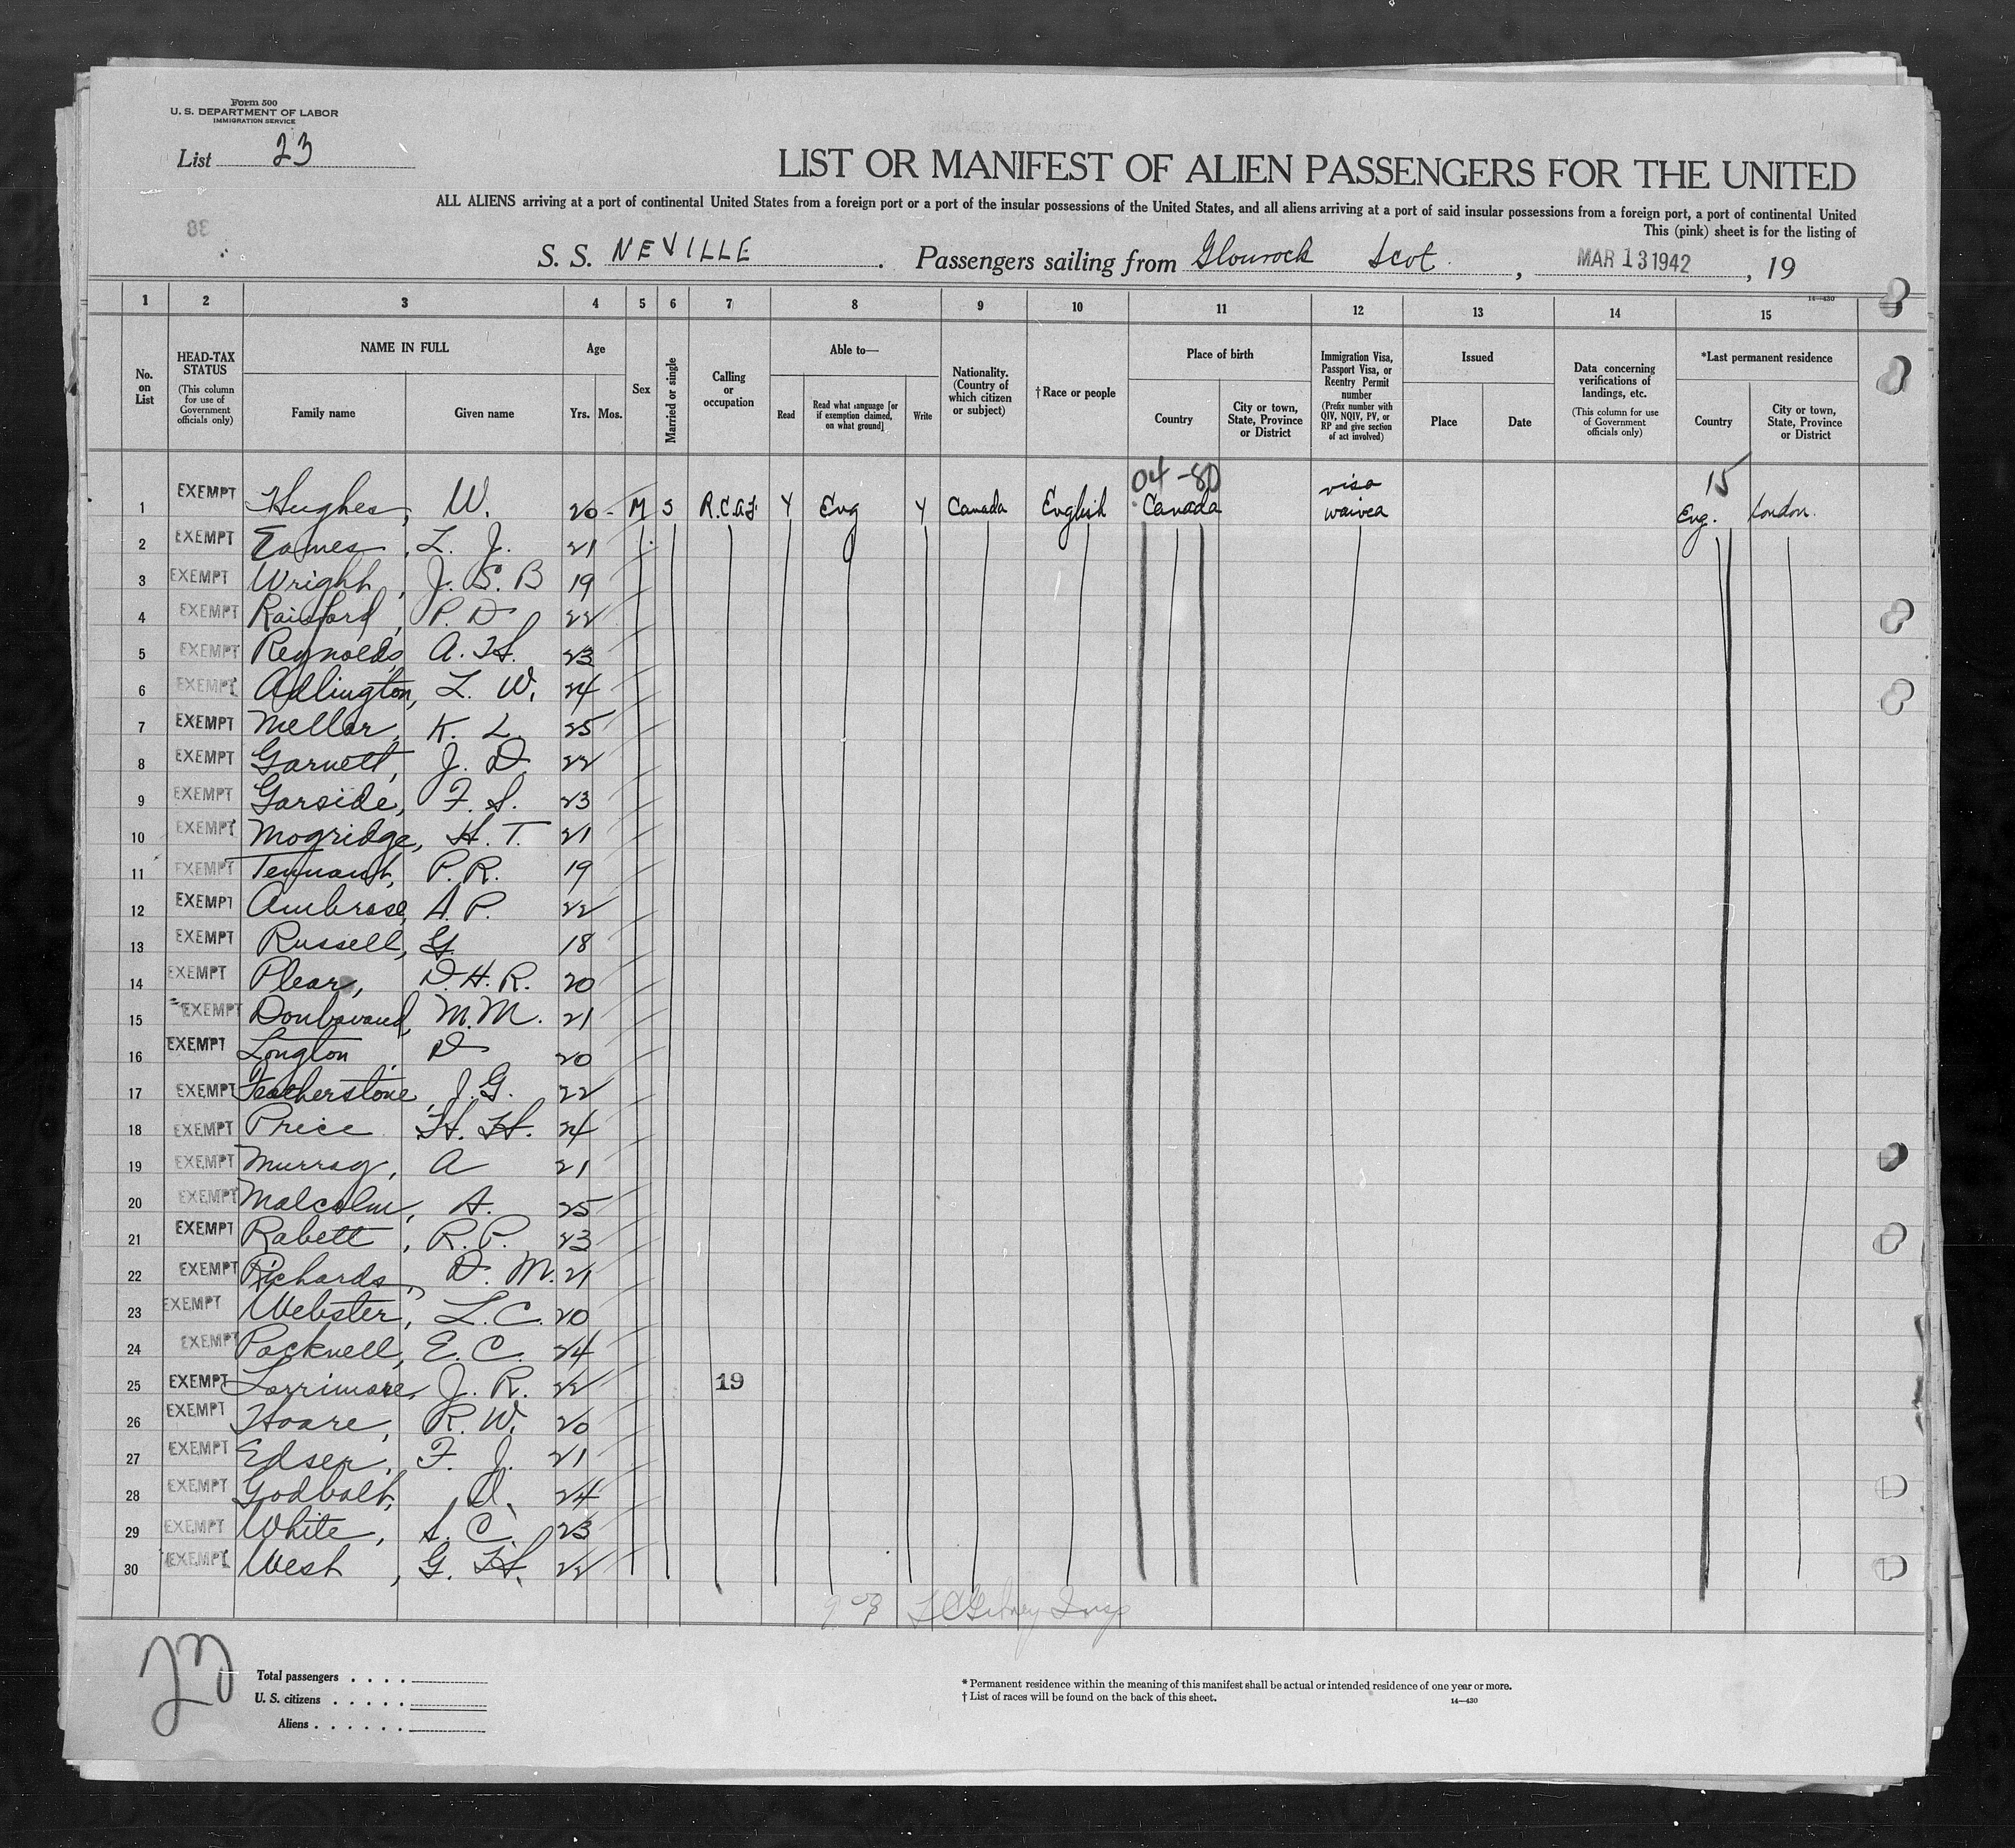 Form 500
U. S. DEPARTMENT OF LABOR
IMMIGRATION SERVICE
List 23
LIST OR MANIFEST OF ALIEN PASSENGERS FOR THE UNITED
ALL ALIENS arriving at a port of continental United States from a foreign port or a port of the insular possessions of the United States, and all aliens arriving at a port of said insular possessions from a foreign port, a port of continental United
This (pink) sheet is for the listing of
S. S. NEVILLE . Passengers sailing from Glourock Scot. , MAR 13 1942 , 19
14—430
1 2 3 4 5 6 7 8 9 10 11 12 13 14 15
No. on List
HEAD-TAX STATUS (This column for use of Government officials only)
NAME IN FULL
Family name Given name
Age
Yrs. Mos.
Sex
Married or single
Calling or occupation
Able to—
Read Read what language [or if exemption claimed, on what ground] Write
Nationality. (Country of which citizen or subject)
†Race or people
Place of birth
Country City or town, State, Province or District
Immigration Visa, Passport Visa, or Reentry Permit number (Prefix number with QIV, NQIV, PV, or RP and give section of act involved)
Issued
Place Date
Data concerning verifications of landings, etc. (This column for use of Government officials only)
*Last permanent residence
Country City or town, State, Province or District
04-80 15
1 EXEMPT Hughes, W. 20 M S R.C.A.F. Y Eng Y Canada English Canada visa waived Eng. London.
2 EXEMPT Eames, L. J. 21
3 EXEMPT Wright, J. S. B 19
4 EXEMPT Rainford, P. D 22
5 EXEMPT Reynolds, A. H. 23
6 EXEMPT Adlington, L. W. 24
7 EXEMPT Mellor, K. L. 25
8 EXEMPT Garnett, J. D. 22
9 EXEMPT Garside, F. S. 23
10 EXEMPT Mogridge, H. T. 21
11 EXEMPT Tennant, P. R. 19
12 EXEMPT Ambrose, A. P. 22
13 EXEMPT Russell, G. 18
14 EXEMPT Plear, D. H. R. 20
15 EXEMPT M. M. 21
16 EXEMPT Longton, D 20
17 EXEMPT Featherstone, J. G. 22
18 EXEMPT Price H. H. 24
19 EXEMPT Murray, A 21
20 EXEMPT Malcolm, A. 25
21 EXEMPT Rabett, R. P. 23
22 EXEMPT Richards, D. M. 21
23 EXEMPT Webster, L. C. 20
24 EXEMPT Packnell, E. C. 24
25 EXEMPT Lorrimore, J. R. 22 19
26 EXEMPT Hoare, R. W. 20
27 EXEMPT Edser, F. J. 21
28 EXEMPT Godbolt, D. 24
29 EXEMPT White, A. C. 23
30 EXEMPT West, G. H. 22
23
Total passengers . . . .
U. S. citizens . . . . .
Aliens . . . . . .
* Permanent residence within the meaning of this manifest shall be actual or intended residence of one year or more.
† List of races will be found on the back of this sheet. 14—430